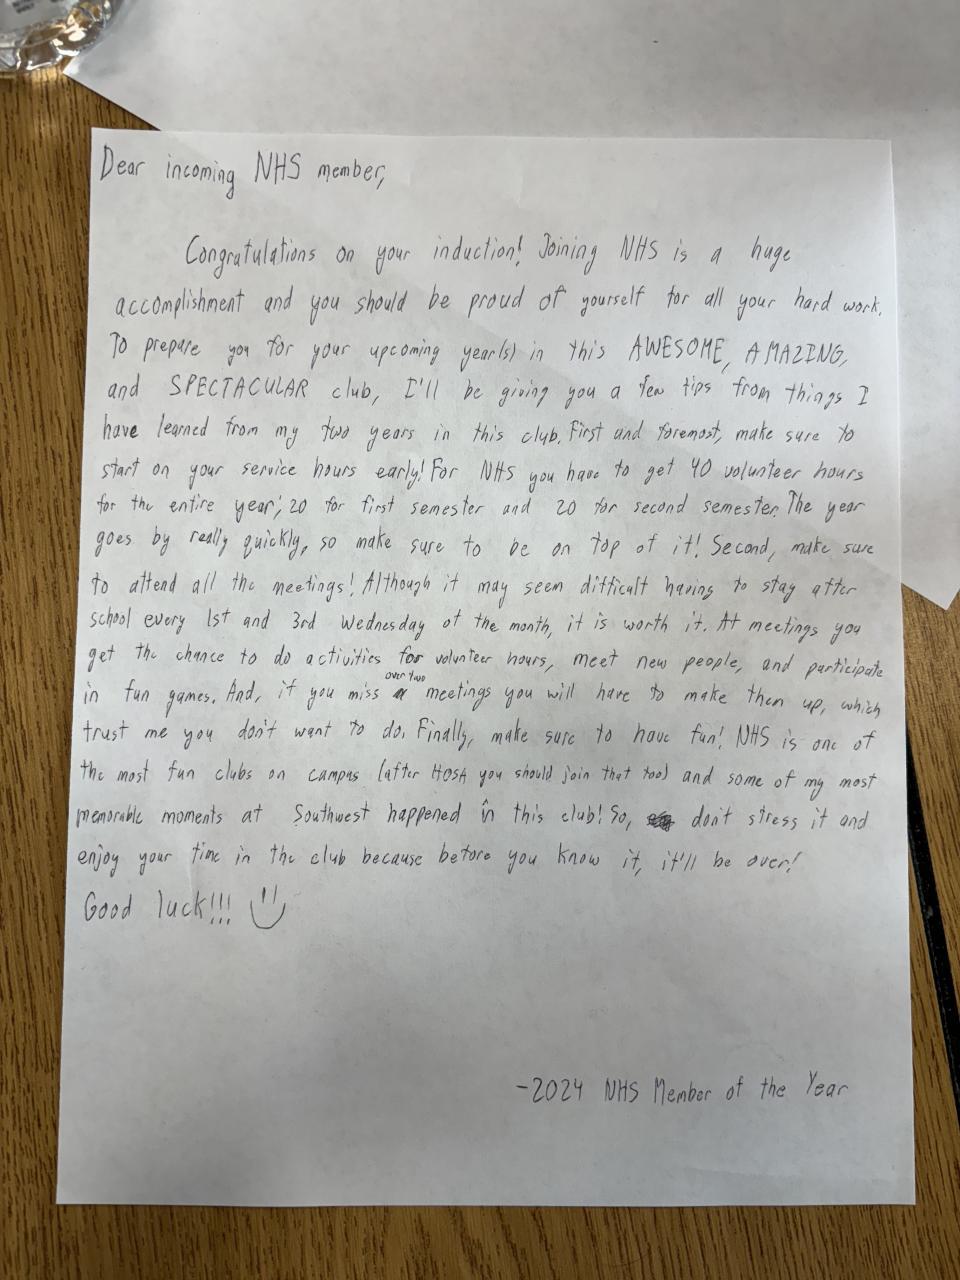 Dear incoming NHS member,
Congratulations on your induction! Joining NHS is a huge
accomplishment and you should be proud of yourself for all your hard work.
To prepare you for your upcoming year(s) in this AWESOME, AMAZING,
and SPECTACULAR club, I'll be giving you a few tips from things I
have learned from my two years in this club. First and foremost, make sure to
start on your service hours early! For NHS you have to get 40 volunteer hours
for the entire year; 20 for first semester and 20 for second semester. The year
goes by really quickly, so make sure to be on top of it! Second, make sure
to attend all the meetings! Although it may seem difficult having to stay after
school every 1st and 3rd Wednesday of the month, it is worth it. At meetings you
get the chance to do activities for volunteer hours, meet new people, and participate
in fun games. And, if you miss over two meetings you will have to make them up, which
trust me you don't want to do. Finally, make sure to have fun! NHS is one of
the most fun clubs on campus (after HOSA you should join that too) and some of my most
memorable moments at Southwest happened in this club! So, don't stress it and
enjoy your time in the club because before you know it, it'll be over!
Good luck!!!
-2024 NHS Member of the Year